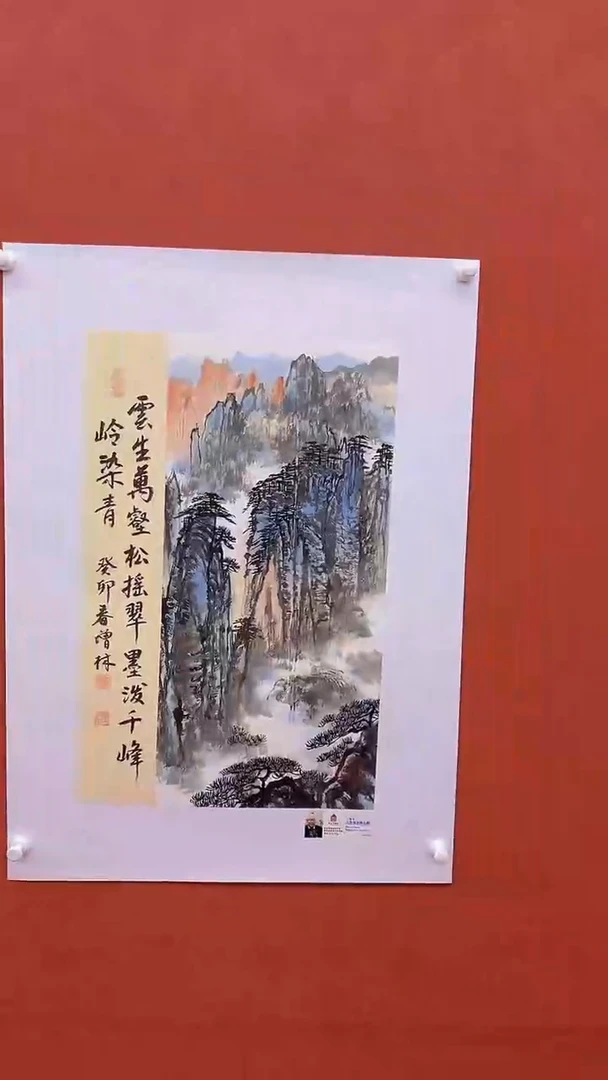 雲生萬壑松搖翠墨潑千峰
岭染青
癸卯春曾林